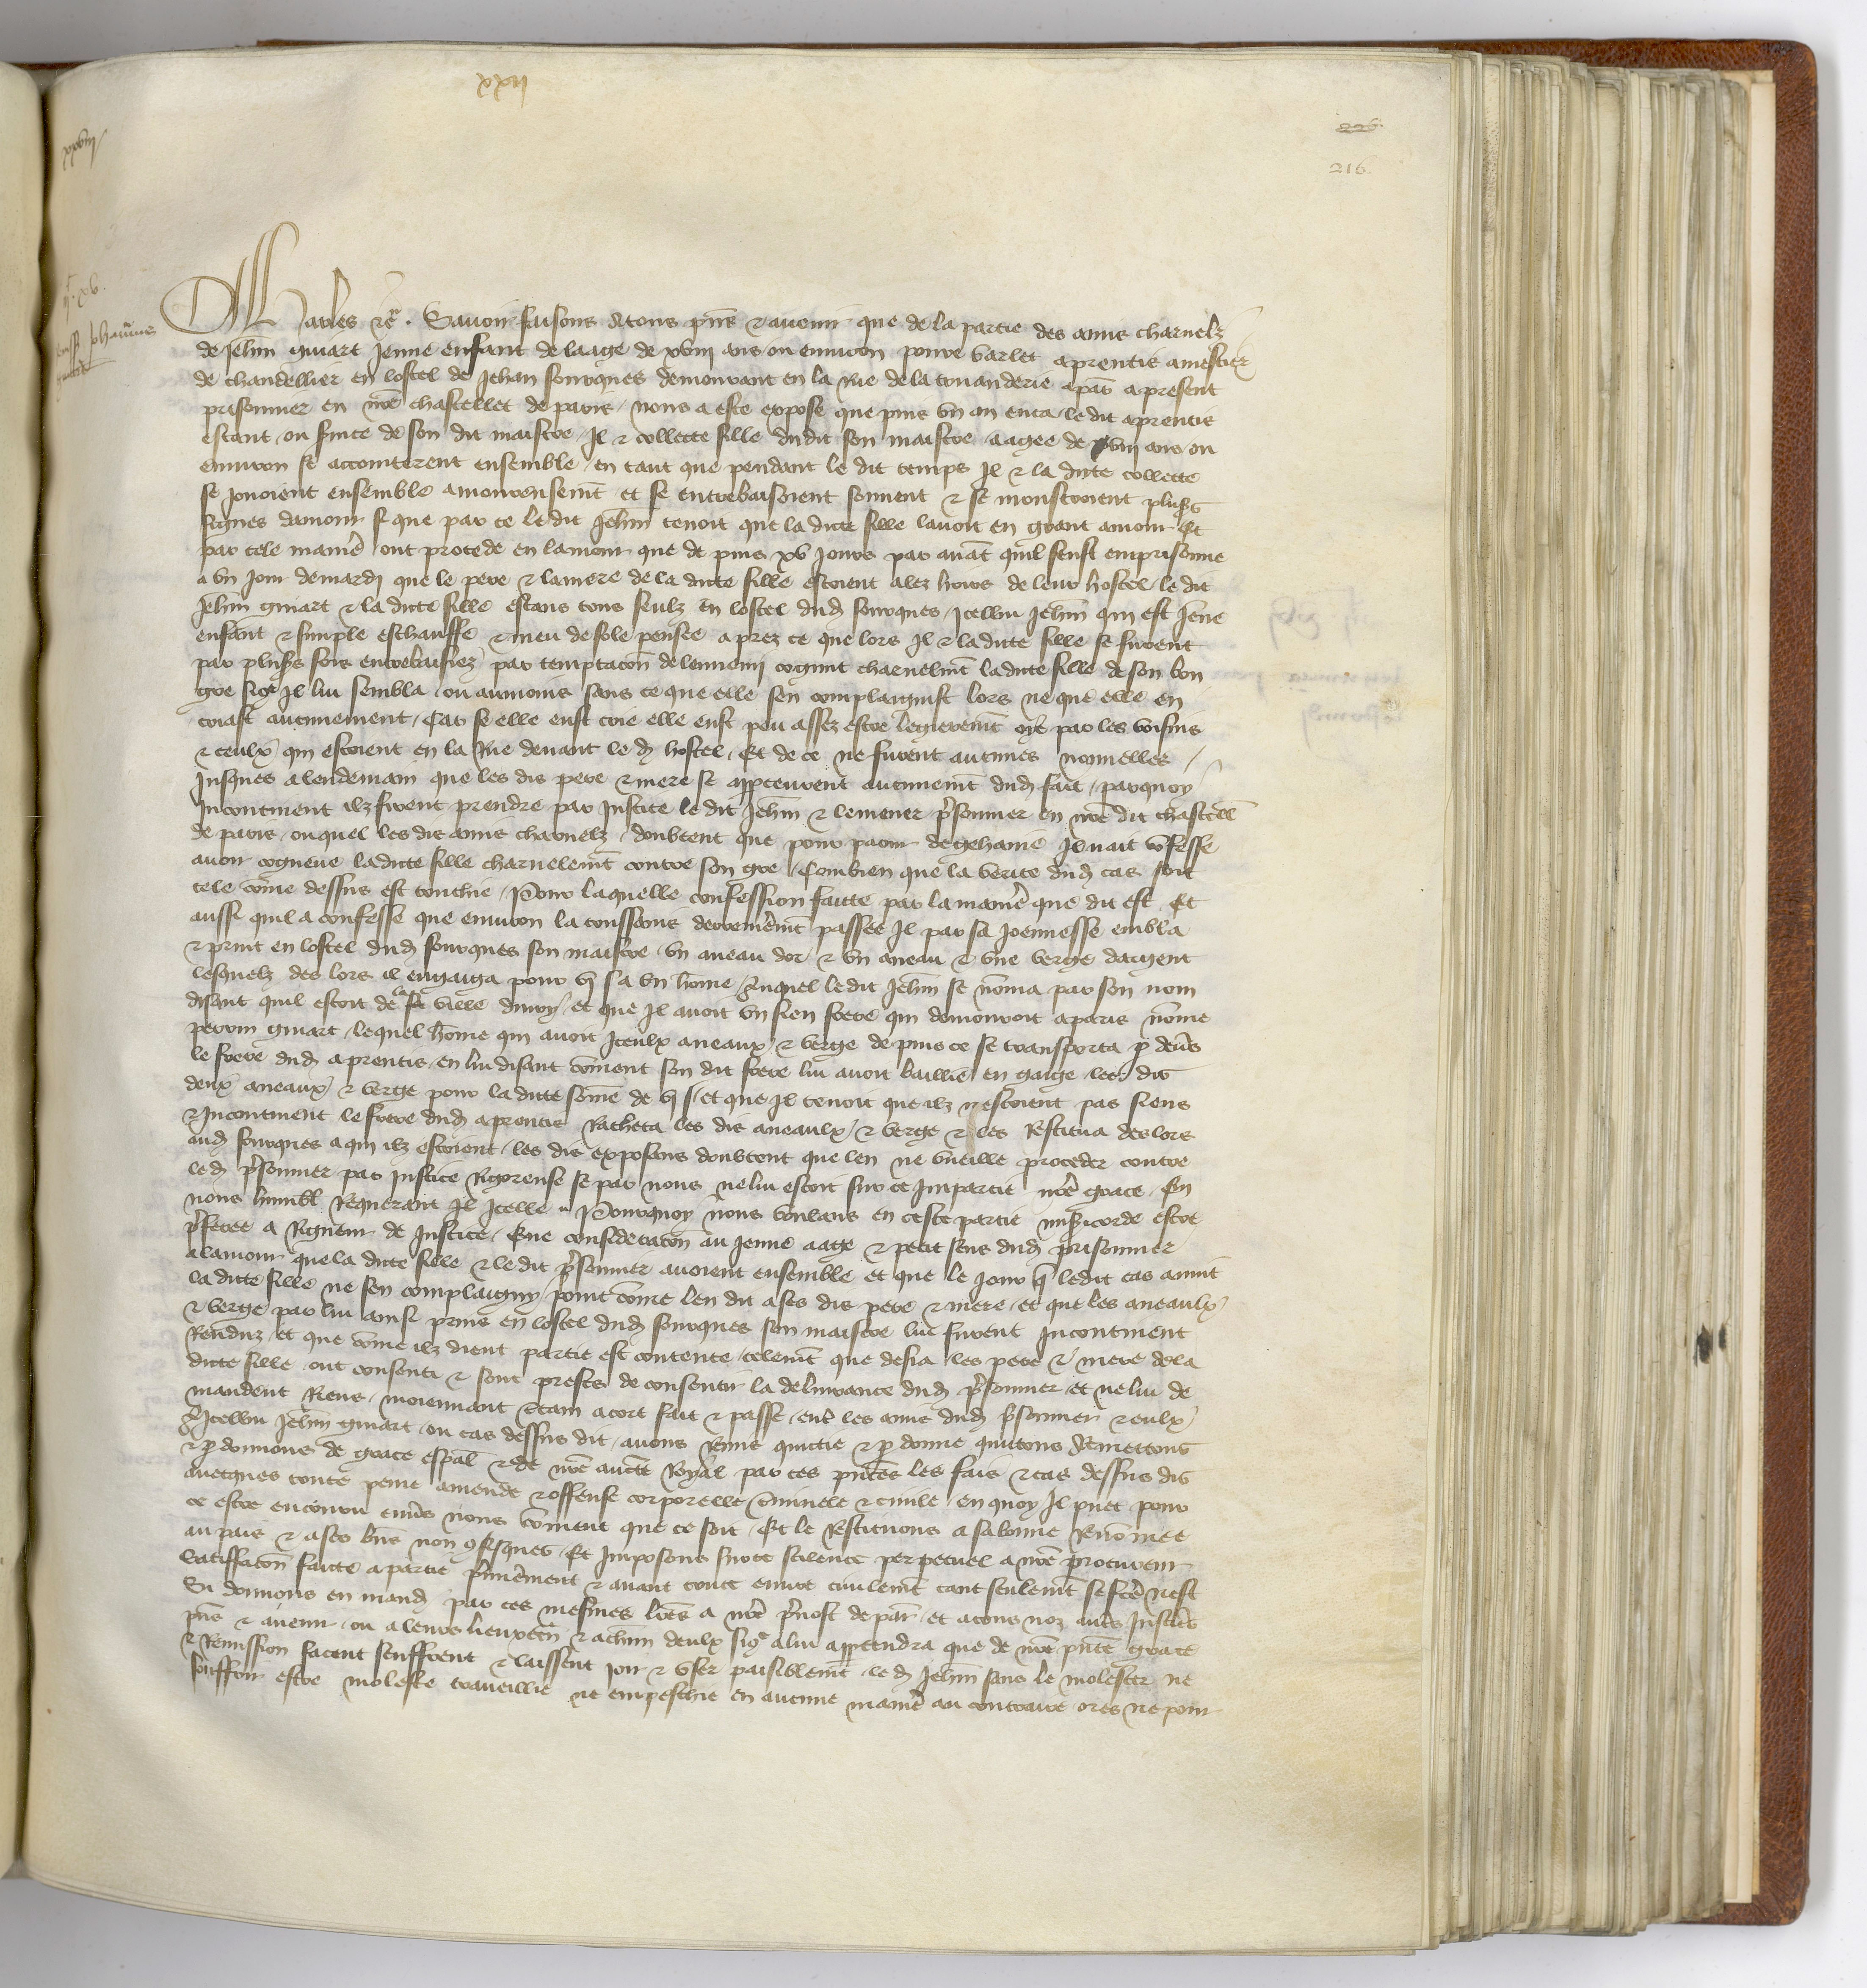 xxii
xxviii
226.
216.
Charles etc. Savoir faisons a tous pñs et avenir que de la partie des amis charnelz
de Jehin Guiart jeune enfant de laage de xviii ans ou environ povre varlet aprentis a mestier
de chandellier en lostel de Jehan Fourques demourant en la rue de la Truanderie a par̃ a present
prisonnier en nr̃e chastellet de paris nous a este expose que puis un an enca ledit aprentis
estant ou s̃vice de son dit maistre Il et Collette fille dudit son maistre aagee de xviii ans ou
environ se accointerent ensemble en tant que pendant le dit temps Il et la dicte Collette
se jouoient ensemble amoureusem̃t et se entrebaisoient souvent et se monstroient plus̃s
signes damour si que par ce le dit Jehin tenoit que la dicte fille lavoit en grant amour Et
par tele manie͂ ont procede en lamour que de puis xv jours par avãt quil feust emprisonne
a un jour de mardi que le pere et la mere de la dicte fille estoient alez hors de leur hostel le dit
Jehin Guiart et la dicte fille estans tous seulz en lostel dud Fourques Icellui Jehin qui est jeñe
enfant et simple eschauffe et meu de fole pensee aprez ce que lors Il et la dicte fille se furent
par plus̃s fois entrebaisiez par temptacõn de lennemi cognut charnelm̃t la dicte fille de son bon
gre sicõe Il lui sembla ou aumoins sans ce que elle sen complaignist lors ne que elle en
criast aucunement Car se elle eust crie elle eust peu assez estre legierem̃t oye par les voisins
et ceulx qui estoient en la rue devant le d hostel Et de ce ne furent aucunes nouvelles
jusques a lendemain que les dis pere et mere se apperceurent aucunem̃t dud fait parquoy
incontinent ilz firent prendre par justice le dit Jehin et lemener p̃sonnier en nr̃e dit chastell̃
de paris ouquel les dis amis charnelz doubtent que pour paour de gehaine Il nait cõfesse
avoir cogneue la dicte fille charnelem̃t contre son gre Combien que la verite dud cas soit
tele cõme dessus est touchie Pour laquelle confession faicte par la manie͂ que dit est Et
aussi quil a confesse que environ la Toussains derrenierem̃t passee Il par sa joennesse embla
et print en lostel dud Fourques son maistre un aneau dor et un aneau et une verge dargent
lesquelz des lors il engaiga pour vi s a un hõme auquel le dit Jehin se nõma par son nom
disant quil estoit de la ville divry et que Il avoit un sien frere qui demouroit a paris nõme
Perrin Guiart lequel hõme qui avoit iceulx aneaux et verge de puis ce se transporta p devs̃
le frere dud aprentis en lui disant cõment son dit frere lui avoit baillie en gaige les dis
deux aneaux et verge pour la dicte sõme de vi s et que Il tenoit que ilz nestoient pas siens
et incontinent le frere dud aprentis racheta les dis aneaulx et verge et les restitua des lors
aud Fourques a qui ilz estoient les dis exposans doubtent que len ne vueille proceder contre
led p̃sonnier par justice rigoreuse se par nous ne lui estoit sur ce impartie nr̃e grace En
nous humbl̃ requerant Il icelle Pourquoy nous voulans en ceste partie mis̃icorde estre
p̃feree a rigueur de justice Eue consideracõn au jeune aage et petit sens dud prisonnier
a lamour que la dicte fille et le dit p̃sonnier avoient ensemble et que le jour q̃ ledit cas avint
la dicte fille ne sen complaigny point cõme len dit a ses dis pere et mere et que les aneaulx
et verge par lui ainsi prins en lostel dud Fourques son maistre lui furent incontinent
renduz et que cõme ilz dient partie est contente telem̃t que desia les pere et mere de la
dicte fille ont consenti et sont prests de consentir la delivrance dud p̃sonnier et ne lui de
mandent riens moiennant c̃tain acort fait et passe entr̃ les amis dud p̃sonnier et eulx
A Icellui Jehin Guiart ou cas dessus dit avons remis quictie et p donne quictons remettons
et p donnons de grace esp̃al et de nr̃e auct̃e royal par ces pñtes les fais et cas dessus dis
avecques toute peine amende et offense corporelle c̃iminele et civile en quoy Il puet pour
ce estre encouru env̾s nous cõment que ce soit Et le restituons a sa bonne renõmee
au pais et a ses bñs non 9fisques Et imposons sur ce scilence perpetuel a nr̃e procureur
satisfacõn faicte a partie p̃mierement et avant tout euvre civilem̃t tant seulem̃t se fc̃e nest
Si donnons en mand par ces mesmes lr̃es a nr̃e p̃vost de par̃ et a tous noz autr̃s justic̃s
pñs et avenir ou a leurs lieuxten̾ et a chũn deulx sicõe a lui app̃tendra que de nr̃e pñte grace
et remission facent seuffrent et laissent joir et user paisiblem̃t led Jehin sans le molester ne
souffrir estre moleste travaillie ne empeschie en aucune manie͂ au contraire ores ne pour